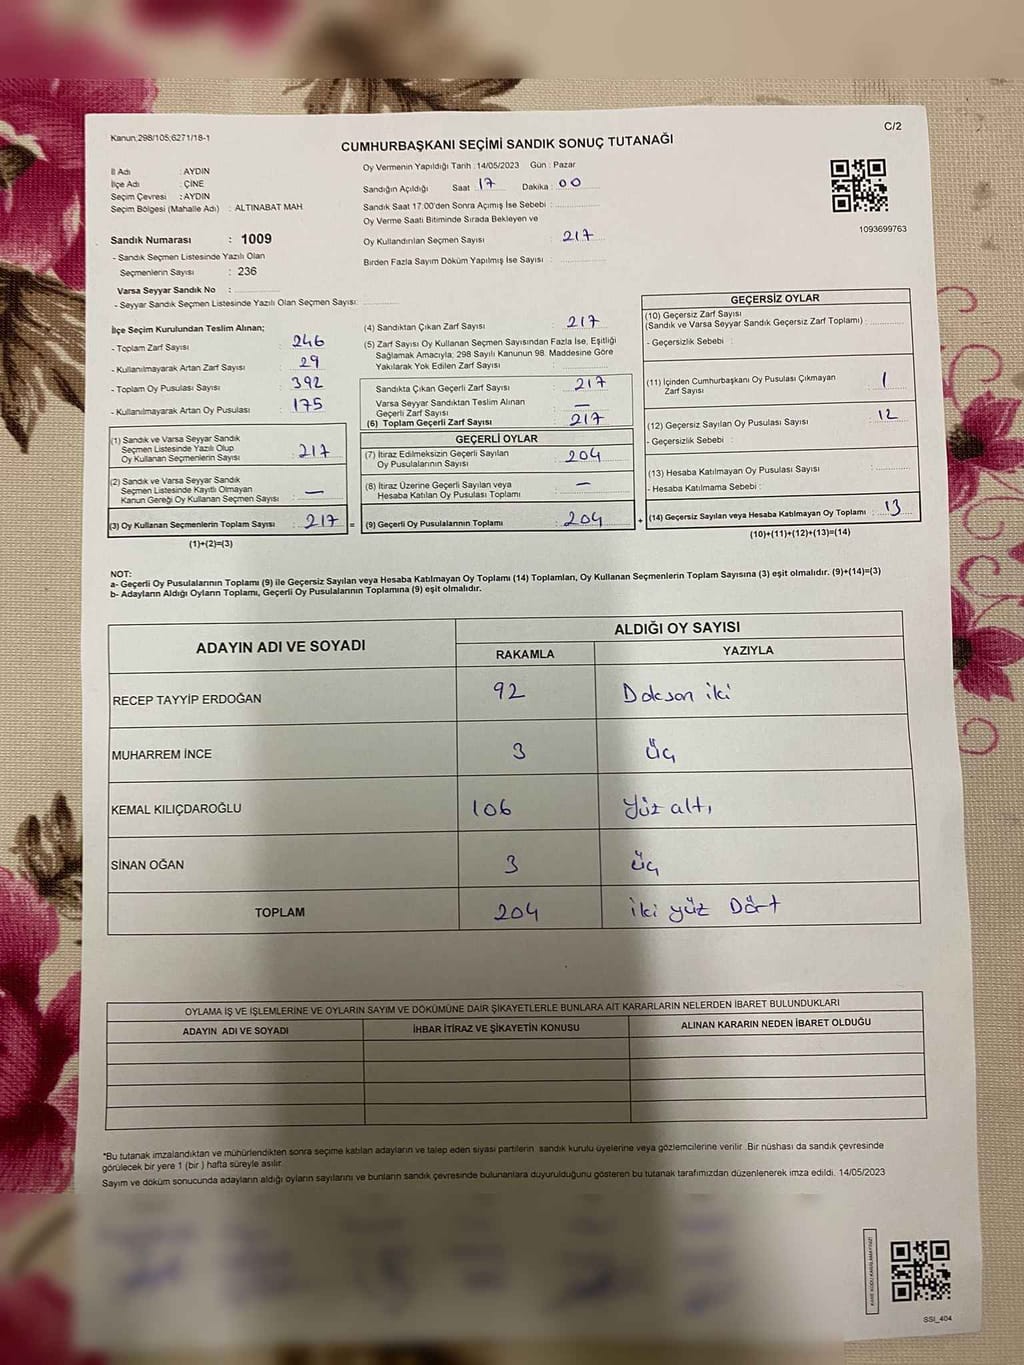 Kanun:298/105;6271/18-1
C/2
CUMHURBAŞKANI SEÇİMİ SANDIK SONUÇ TUTANAĞI
İl Adı : AYDIN
İlçe Adı : ÇİNE
Seçim Çevresi : AYDIN
Seçim Bölgesi (Mahalle Adı) : ALTINABAT MAH.
Sandık Numarası : 1009
- Sandık Seçmen Listesinde Yazılı Olan
Seçmenlerin Sayısı : 236
Varsa Seyyar Sandık No :
- Seyyar Sandık Seçmen Listesinde Yazılı Olan Seçmen Sayısı:
Oy Vermenin Yapıldığı Tarih :14/05/2023 Gün : Pazar
Sandığın Açıldığı Saat : 17 Dakika : 00
Sandık Saat 17:00'den Sonra Açımış İse Sebebi :
Oy Verme Saati Bitiminde Sırada Bekleyen ve
Oy Kullandırılan Seçmen Sayısı : 217
Birden Fazla Sayım Döküm Yapılmış İse Sayısı :
1093699763
İlçe Seçim Kurulundan Teslim Alınan;
- Toplam Zarf Sayısı : 246
- Kullanılmayarak Artan Zarf Sayısı : 29
- Toplam Oy Pusulası Sayısı : 392
- Kullanılmayarak Artan Oy Pusulası : 175
(1) Sandık ve Varsa Seyyar Sandık
Seçmen Listesinde Yazılı Olup
Oy Kullanan Seçmenlerin Sayısı : 217
(2) Sandık ve Varsa Seyyar Sandık
Seçmen Listesinde Kayıtlı Olmayan
Kanun Gereği Oy Kullanan Seçmen Sayısı : —
(3) Oy Kullanan Seçmenlerin Toplam Sayısı : 217 =
(1)+(2)=(3)
(4) Sandıktan Çıkan Zarf Sayısı : 217
(5) Zarf Sayısı Oy Kullanan Seçmen Sayısından Fazla İse, Eşitliği
Sağlamak Amacıyla; 298 Sayılı Kanunun 98. Maddesine Göre
Yakılarak Yok Edilen Zarf Sayısı :
Sandıkta Çıkan Geçerli Zarf Sayısı : 217
Varsa Seyyar Sandıktan Teslim Alınan
Geçerli Zarf Sayısı : —
(6) Toplam Geçerli Zarf Sayısı : 217
GEÇERLİ OYLAR
(7) İtiraz Edilmeksizin Geçerli Sayılan
Oy Pusulalarının Sayısı : 204
(8) İtiraz Üzerine Geçerli Sayılan veya
Hesaba Katılan Oy Pusulası Toplamı : —
(9) Geçerli Oy Pusulalarının Toplamı : 204 +
GEÇERSİZ OYLAR
(10) Geçersiz Zarf Sayısı
(Sandık ve Varsa Seyyar Sandık Geçersiz Zarf Toplamı) :
- Geçersizlik Sebebi :
(11) İçinden Cumhurbaşkanı Oy Pusulası Çıkmayan
Zarf Sayısı : 1
(12) Geçersiz Sayılan Oy Pusulası Sayısı : 12
- Geçersizlik Sebebi :
(13) Hesaba Katılmayan Oy Pusulası Sayısı :
- Hesaba Katılmama Sebebi :
(14) Geçersiz Sayılan veya Hesaba Katılmayan Oy Toplamı : 13
(10)+(11)+(12)+(13)=(14)
NOT:
a- Geçerli Oy Pusulalarının Toplamı (9) ile Geçersiz Sayılan veya Hesaba Katılmayan Oy Toplamı (14) Toplamları, Oy Kullanan Seçmenlerin Toplam Sayısına (3) eşit olmalıdır. (9)+(14)=(3)
b- Adayların Aldığı Oyların Toplamı, Geçerli Oy Pusulalarının Toplamına (9) eşit olmalıdır.
ADAYIN ADI VE SOYADI
ALDIĞI OY SAYISI
RAKAMLA YAZIYLA
RECEP TAYYİP ERDOĞAN 92 Dokson iki
MUHARREM İNCE 3 üç
KEMAL KILIÇDAROĞLU 106 Yüz altı
SİNAN OĞAN 3 üç
TOPLAM 204 iki yüz Dört
OYLAMA İŞ VE İŞLEMLERİNE VE OYLARIN SAYIM VE DÖKÜMÜNE DAİR ŞİKAYETLERLE BUNLARA AİT KARARLARIN NELERDEN İBARET BULUNDUKLARI
ADAYIN ADI VE SOYADI İHBAR İTİRAZ VE ŞİKAYETİN KONUSU ALINAN KARARIN NEDEN İBARET OLDUĞU
*Bu tutanak imzalandıktan ve mühürlendikten sonra seçime katılan adayların ve talep eden siyasi partilerin sandık kurulu üyelerine veya gözlemcilerine verilir. Bir nüshası da sandık çevresinde
görülecek bir yere 1 (bir ) hafta süreyle asılır.
Sayım ve döküm sonucunda adayların aldığı oyların sayılarını ve bunların sandık çevresinde bulunanlara duyurulduğunu gösteren bu tutanak tarafımızdan düzenlenerek imza edildi. 14/05/2023
SSI_404